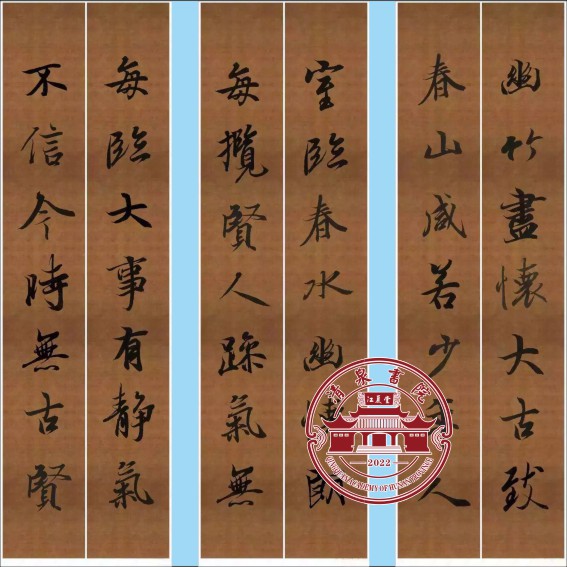 幽竹盡懷大古致
春山咸若少年人
室臨春水幽懷朗
每攬賢人躁氣無
每臨大事有靜氣
不信今時無古賢
書院
江夏堂
2022
ACADEMY OF HUNAN PROVINCE